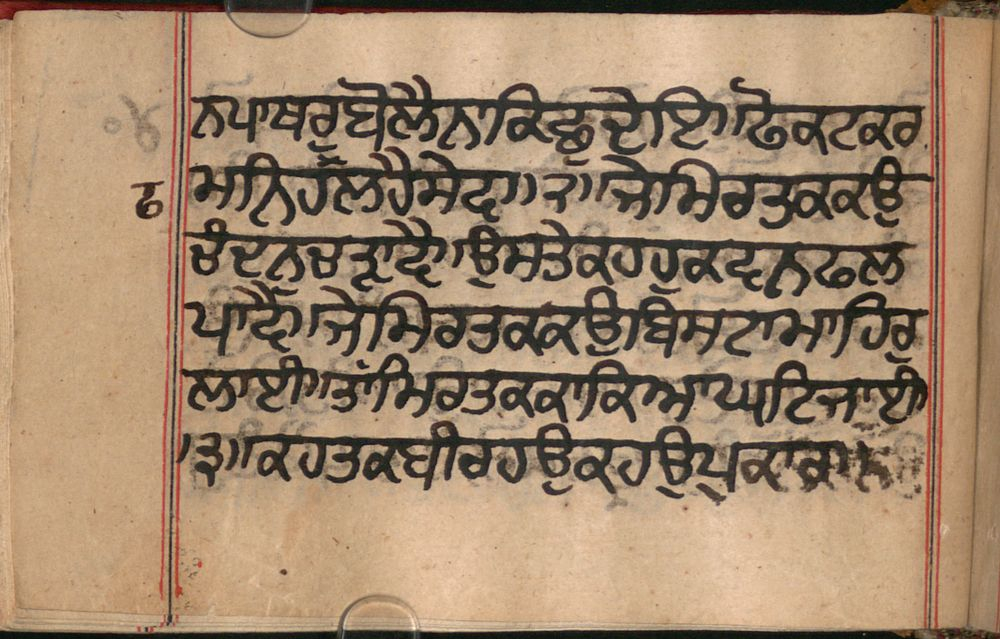 ਨਪਾਥਰੁਬੋਲੈਨਾਕਿਛੁਦੇਇ॥ਫੋਕਟਕਰ
ਫ
ਮਨਿਹਲਹੈਸੇਵ॥੨॥ਜੇਮਿਰਤਕਕਉ
ਚੰਦਨੁਚੜਾਵੈ॥ਉਸਤੇਕਹਹੁਕਵਨਫਲ
ਪਾਵੈ॥ਜੇਮਿਰਤਕਕਉਬਿਸਟਾਮਾਹਿਰੁ
ਲਾਈ॥ਤਾਂਮਿਰਤਕਕਾਕਿਆਘਟਿਜਾਈ
॥੩॥ਕਹਤਕਬੀਰਹਉਕਹਉਪੁਕਾਰ